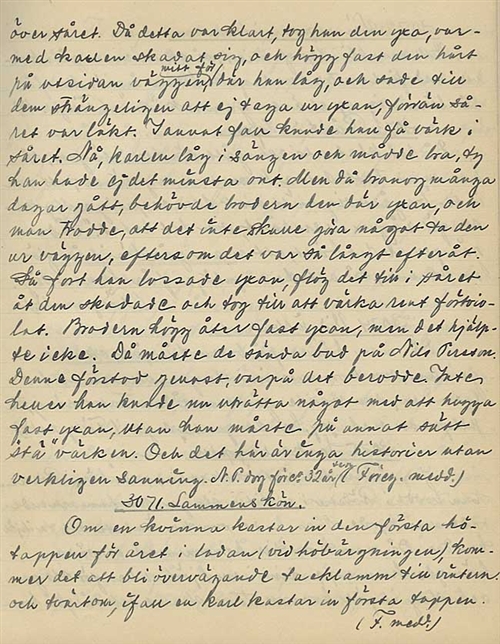 över såret. Då detta var klart, tog han den yxa, var-
med karlen skadat sig, och högg fast den hårt
på utsidan väggen, mitt för där han låg, och sade till
dem strängeligen att ej taga ur yxan, förrän så-
ret var läkt. I annat fall kunde han få värk i
såret. Nå, karlen låg i sängen och mådde bra, ty
han hade ej det minsta ont. Men då bra nog många
dagar gått, behövde brodern den där yxan, och
man trodde, att det inte skulle göra något ta den
ur väggen, eftersom det var så långt efteråt.
Så fort han lossade yxan, flög det till i såret
åt den skadade och tog till att värka rent förtvio-
lat. Brodern högg åter fast yxan, men det hjälp-
te icke. Då måste de sända bud på Nils Persson.
Denne förstod genast, varpå det berodde. Inte
heller han kunde nu uträtta något med att hugga
fast yxan, utan han måste på annat sätt
"stä" värken. Och det här är inga historier utan
verkligen sanning. N. P. dog för c:a 32 år sen. (Föreg. medd.)
3071. Lammens kön.
Om en kvinna kastar in den första hö-
tappen för året i ladan (vid höbärgningen), kom-
mer det att bli övervägande tacklamm till vintern
och tvärtom, ifall en karl kastar in första tappen.
(F. medd.)